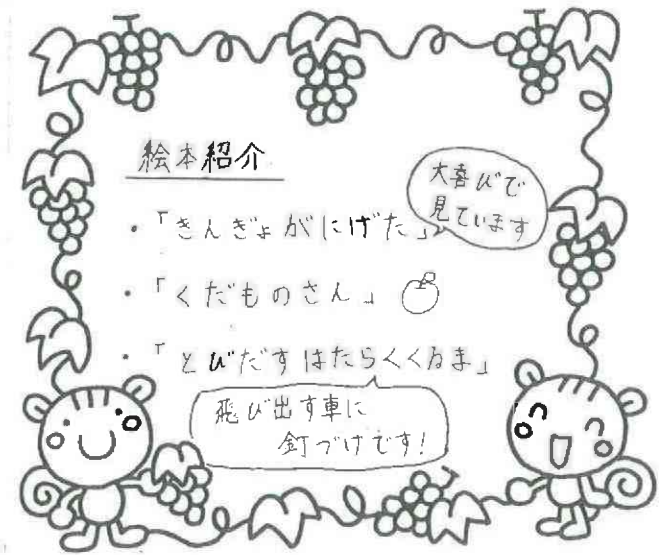 絵本紹介
大喜びで
見ています
・「きんぎょがにげた」
・「くだものさん」
・「とびだすはたらくくるま」
飛び出す車に
釘づけです!